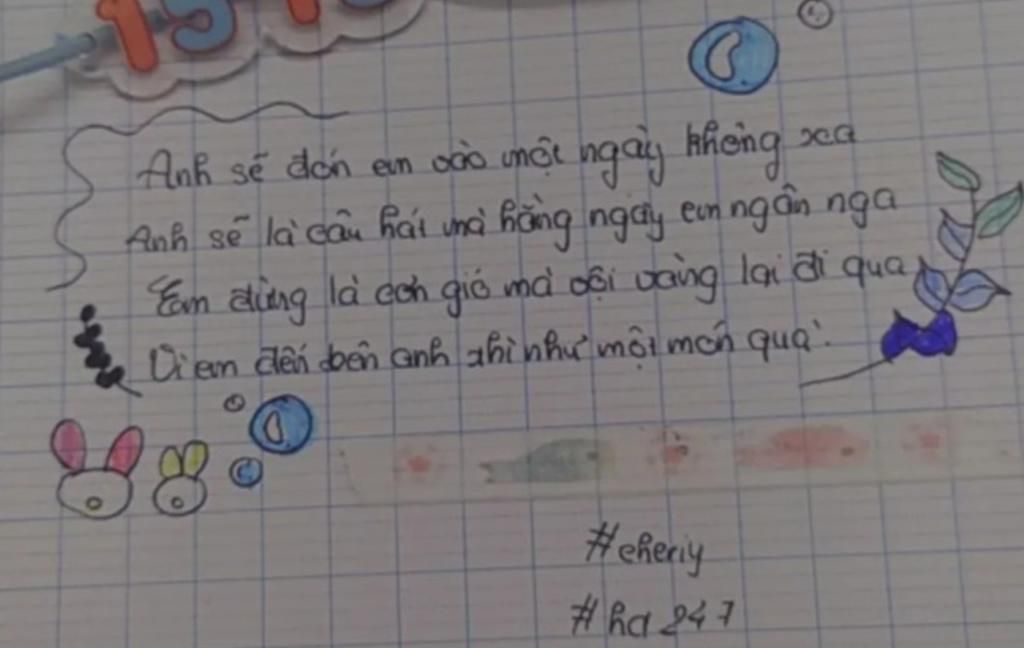 Anh sẽ đón em vào một ngày không xa
Anh sẽ là câu hát mà hằng ngày em ngân nga
Em đừng là cơn gió mà vội vàng lại đi qua
Vì em đến bên anh thì như một món quà.
#cheriy
#ha247